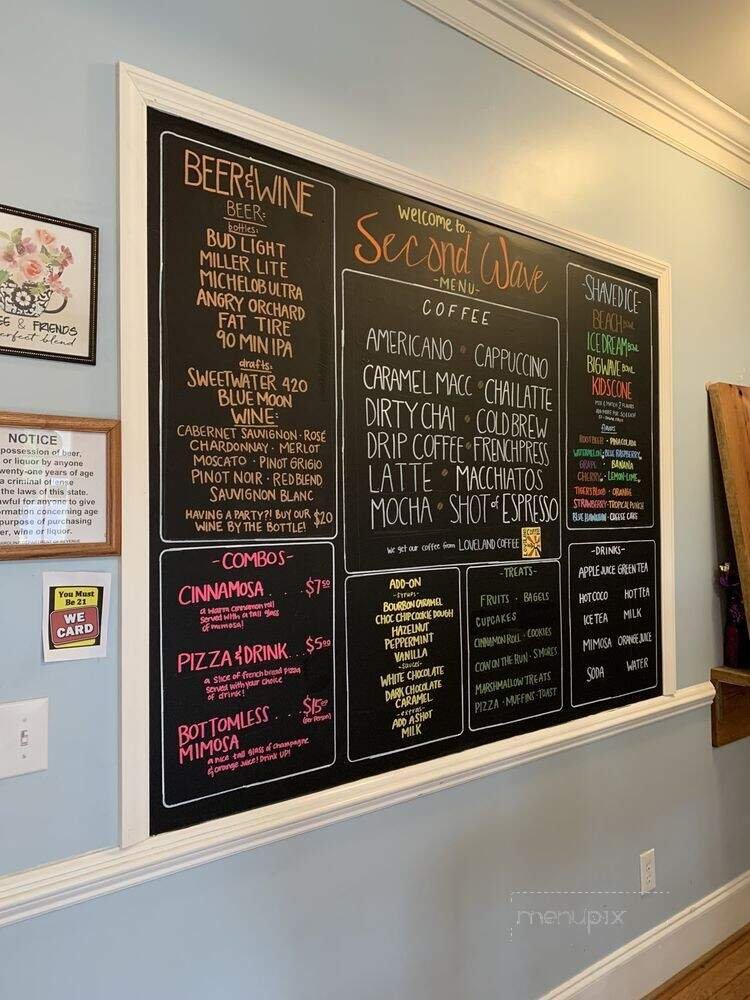 BEER & WINE
BEER:
bottles:
BUD LIGHT
MILLER LITE
MICHELOB ULTRA
ANGRY ORCHARD
FAT TIRE
90 MIN IPA
drafts:
SWEETWATER 420
BLUE MOON
WINE:
CABERNET SAUVIGNON · ROSÉ
CHARDONNAY · MERLOT
MOSCATO · PINOT GRIGIO
PINOT NOIR · RED BLEND
SAUVIGNON BLANC
HAVING A PARTY? BUY OUR
WINE BY THE BOTTLE! $20
-COMBOS-
CINNAMOSA ... $7.50
a warm cinnamon roll
served with a tall glass
of mimosa!
PIZZA & DRINK ... $5.00
a slice of french bread pizza
served with your choice
of drink!
BOTTOMLESS ... $15.00
(per person)
MIMOSA
a nice tall glass of champagne
& orange juice! Drink UP!
welcome to...
Second Wave
-MENU-
COFFEE
AMERICANO · CAPPUCCINO
CARAMEL MACC · CHAI LATTE
DIRTY CHAI · COLD BREW
DRIP COFFEE · FRENCH PRESS
LATTE · MACCHIATOS
MOCHA · SHOT of ESPRESSO
we get our coffee from LOVELAND COFFEE
ADD-ON
-syrups-
BOURBON CARAMEL
CHOC CHIP COOKIE DOUGH
HAZELNUT
PEPPERMINT
VANILLA
-sauces-
WHITE CHOCOLATE
DARK CHOCOLATE
CARAMEL
-extras-
ADD A SHOT
MILK
-TREATS-
FRUITS · BAGELS
CUPCAKES
CINNAMON ROLL · COOKIES
COW ON THE RUN · S'MORES
MARSHMALLOW TREATS
PIZZA · MUFFINS · TOAST
-SHAVED ICE-
BEACH BOWL
ICE DREAM BOWL
BIG WAVE BOWL
KIDS CONE
MIX & MATCH 2 FLAVORS
flavors
ROOTBEER · PINA COLADA
WATERMELON · BLUE RASPBERRY
GRAPE · BANANA
CHERRY · LEMON-LIME
TIGERS BLOOD · ORANGE
STRAWBERRY · TROPICAL PUNCH
BLUE HAWAIIAN · CHEESE CAKE
-DRINKS-
APPLE JUICE GREEN TEA
HOT COCO HOT TEA
ICE TEA MILK
MIMOSA ORANGE JUICE
SODA WATER
& FRIENDS
perfect blend
NOTICE
possession of beer,
or liquor by anyone
wenty-one years of age
a criminal offense
the laws of this state.
awful for anyone to give
ormation concerning age
purpose of purchasing
er, wine or liquor.
You Must
Be 21
WE
CARD
menupix